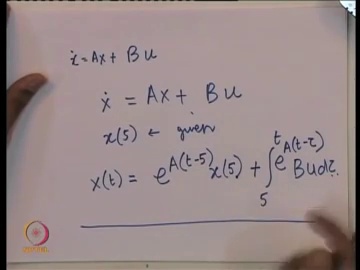 ẋ = Ax + Bu
ẋ = Ax + Bu
x(5) ← given
x(t) = e^{A(t-5)} x(5) + ∫_5^t e^{A(t-τ)} Bu dτ.
NPTEL